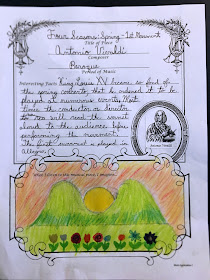 Four Seasons: Spring - 1st Movement
Title of Piece
Antonio Vivaldi
Composer
Baroque
Period of Music
Interesting Facts: King Louis XV became so fond of
the spring concerto that he ordered it to be
played at numerous events. Most
time the conductor or director
will read the sonnet
aloud to the audience before
performing the movement.
The first movement is played in
allegro.
Antonio Vivaldi
When I listen to this musical piece, I imagine...